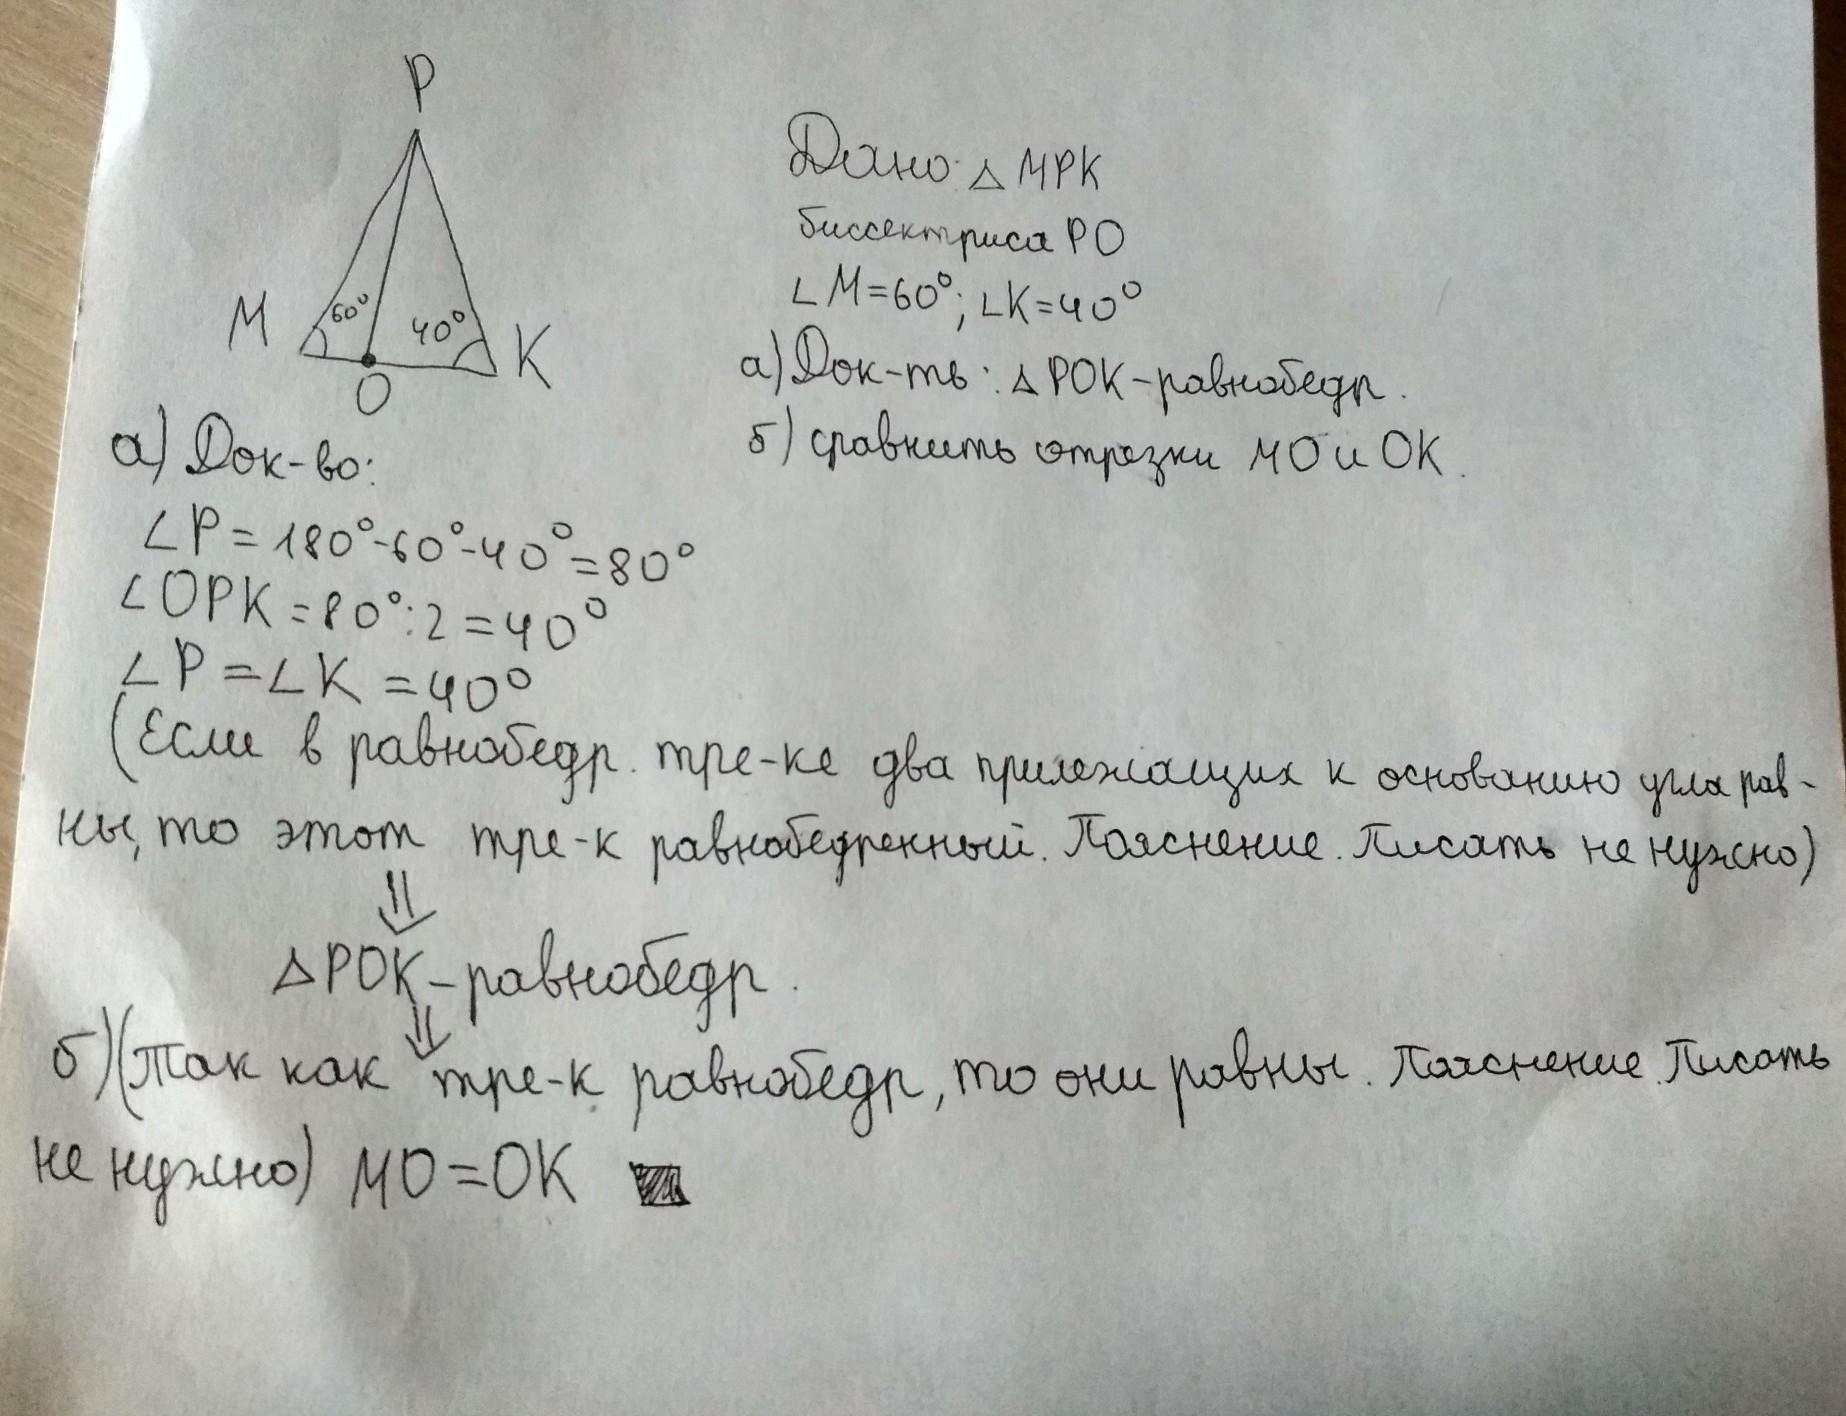 P
M
60°
40°
K
O
Дано: △ МРК
биссектриса РО
∠М=60°; ∠К=40°
а) Док-ть: △РОК-равнобедр.
б) сравнить отрезки МО и ОК.
а) Док-во:
∠Р=180°-60°-40°=80°
∠ОРК=80°:2=40°
∠Р=∠К=40°
(Если в равнобедр. тре-ке два прилежащих к основанию угла рав-
ны, то этот тре-к равнобедренный. Пояснение. Писать не нужно)
⇓
△РОК-равнобедр.
⇓
б)(Так как тре-к равнобедр, то они равны. Пояснение. Писать
не нужно) МО=ОК